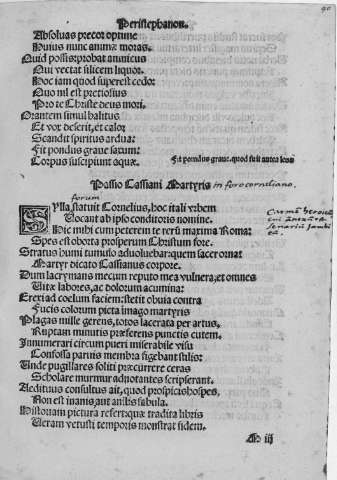 90
Peristephanon.
Absoluas precor optime
Huius nunc animæ moras.
Quid possis: probat amnicus
Qui vectat silicem liquor.
Hoc iam quod superest cedo:
Quo nil est pretiosius
Pro te Christe deus mori.
Orantem simul halitus
Et vox deserit, et calor
Scandit spiritus ardua:
Fit pondus graue saxum:
Corpus suscipiunt aquæ.
Fit pondus graue. quod fuit antea leue
Passio Cassiani Martyris in foro corneliano.
forum
Sylla statuit Cornelius, hoc itali vrbem
Vocant ab ipso conditoris nomine.
Hic mihi cum peterem te rerũ maxima Roma:
Spes est oborta prosperum Christum fore.
Stratus humi tumulo aduoluebar: quem sacer ornat
Martyr dicato Cassianus corpore.
Dum lacrymans mecum reputo mea vulnera, et omnes
Vitæ labores, ac dolorum acumina:
Erexi ad coelum faciem: stetit obuia contra
Fucis colorum picta imago martyris
Plagas mille gerens, totos lacerata per artus,
Ruptam minutis præferens punctis cutem.
Innumeri circum pueri miserabile visu
Confossa paruis membra figebant stilis:
Unde pugillares soliti præcurrere ceras
Scholare murmur adnotantes scripserant.
Aedituus consultus ait, quod prospicis hospes,
Non est inanis, aut anilis fabula.
Historiam pictura refert: quæ tradita libris
Veram vetusti temporis monstrat fidem.
A iij